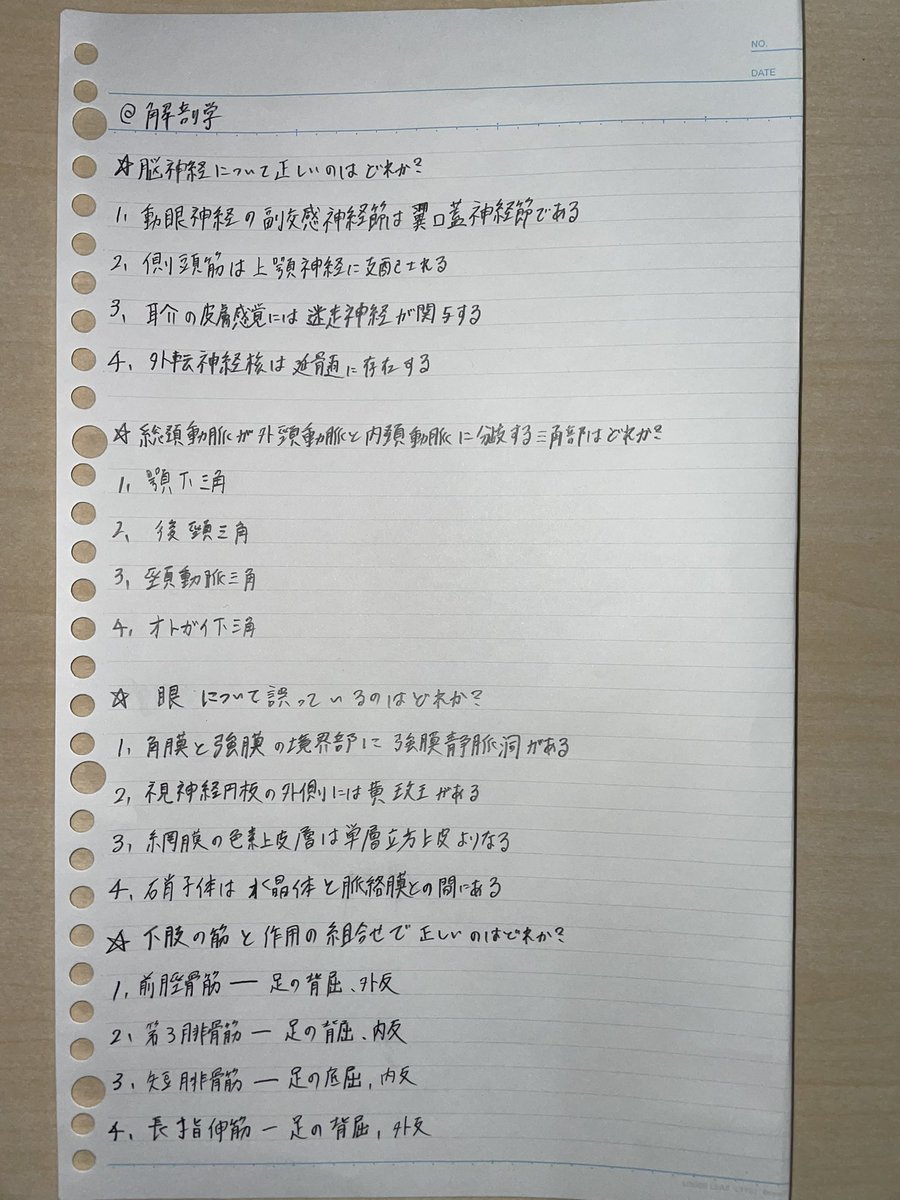 NO.
DATE
@解剖学
☆脳神経について正しいのはどれか?
1, 動眼神経の副交感神経節は翼口蓋神経節である
2, 側頭筋は上顎神経に支配される
3, 耳介の皮膚感覚には迷走神経が関与する
4, 外転神経核は延髄に存在する
☆総頚動脈が外頚動脈と内頚動脈に分岐する三角部はどれか?
1, 顎下三角
2, 後頚三角
3, 頚動脈三角
4, オトガイ下三角
☆ 眼 について誤っているのはどれか?
1, 角膜と強膜の境界部に強膜静脈洞がある
2, 視神経円板の外側には黄斑がある
3, 網膜の色素上皮層は単層立方上皮よりなる
4, 硝子体は水晶体と脈絡膜との間にある
☆下肢の筋と作用の組合せで正しいのはどれか?
1, 前脛骨筋 ― 足の背屈、外反
2, 第3腓骨筋 ― 足の背屈、内反
3, 短腓骨筋 ― 足の底屈, 内反
4, 長指伸筋 ― 足の背屈, 外反